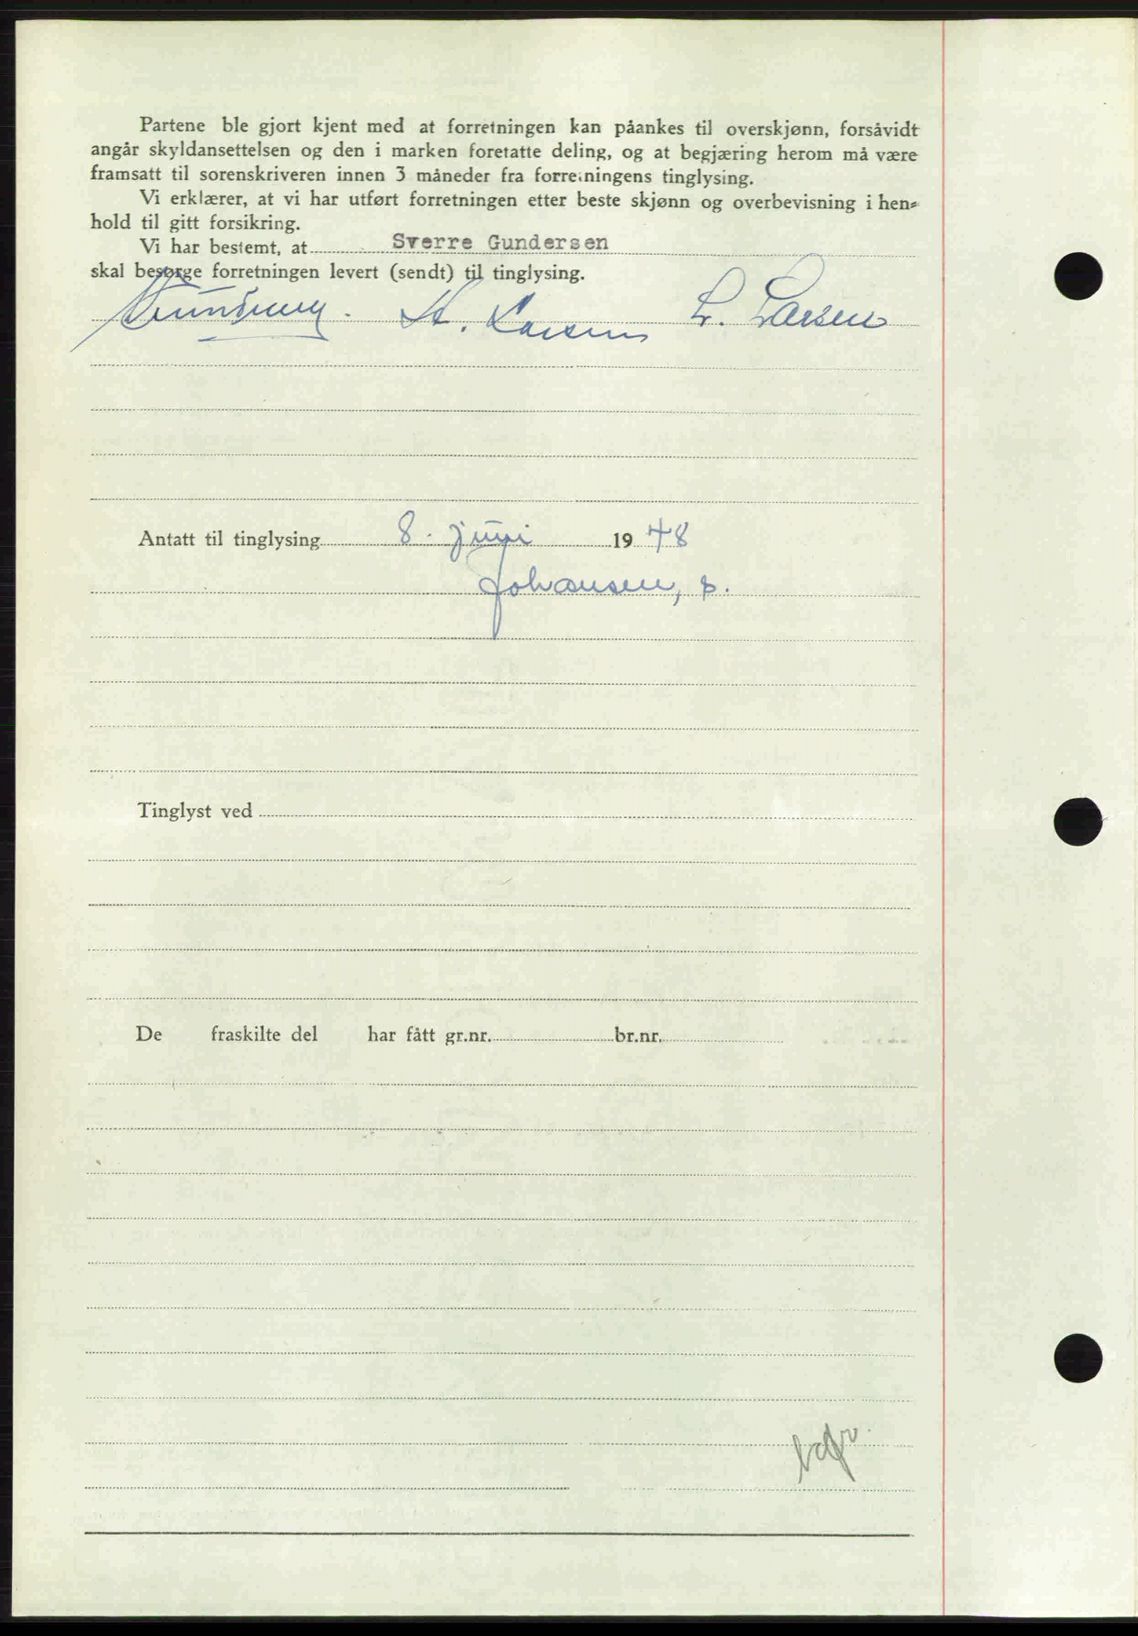 Partene ble gjort kjent med at forretningen kan påankes til overskjønn, forsåvidt
angår skyldansettelsen og den i marken foretatte deling, og at begjæring herom må være
framsatt til sorenskriveren innen 3 måneder fra forretningens tinglysing.
Vi erklærer, at vi har utført forretningen etter beste skjønn og overbevisning i hen-
hold til gitt forsikring.
Vi har bestemt, at Sverre Gundersen
skal besørge forretningen levert (sendt) til tinglysing.
L. Larsen
Antatt til tinglysing 8. juni 1948
Johansen, s.
Tinglyst ved
De fraskilte del har fått gr.nr. br.nr.